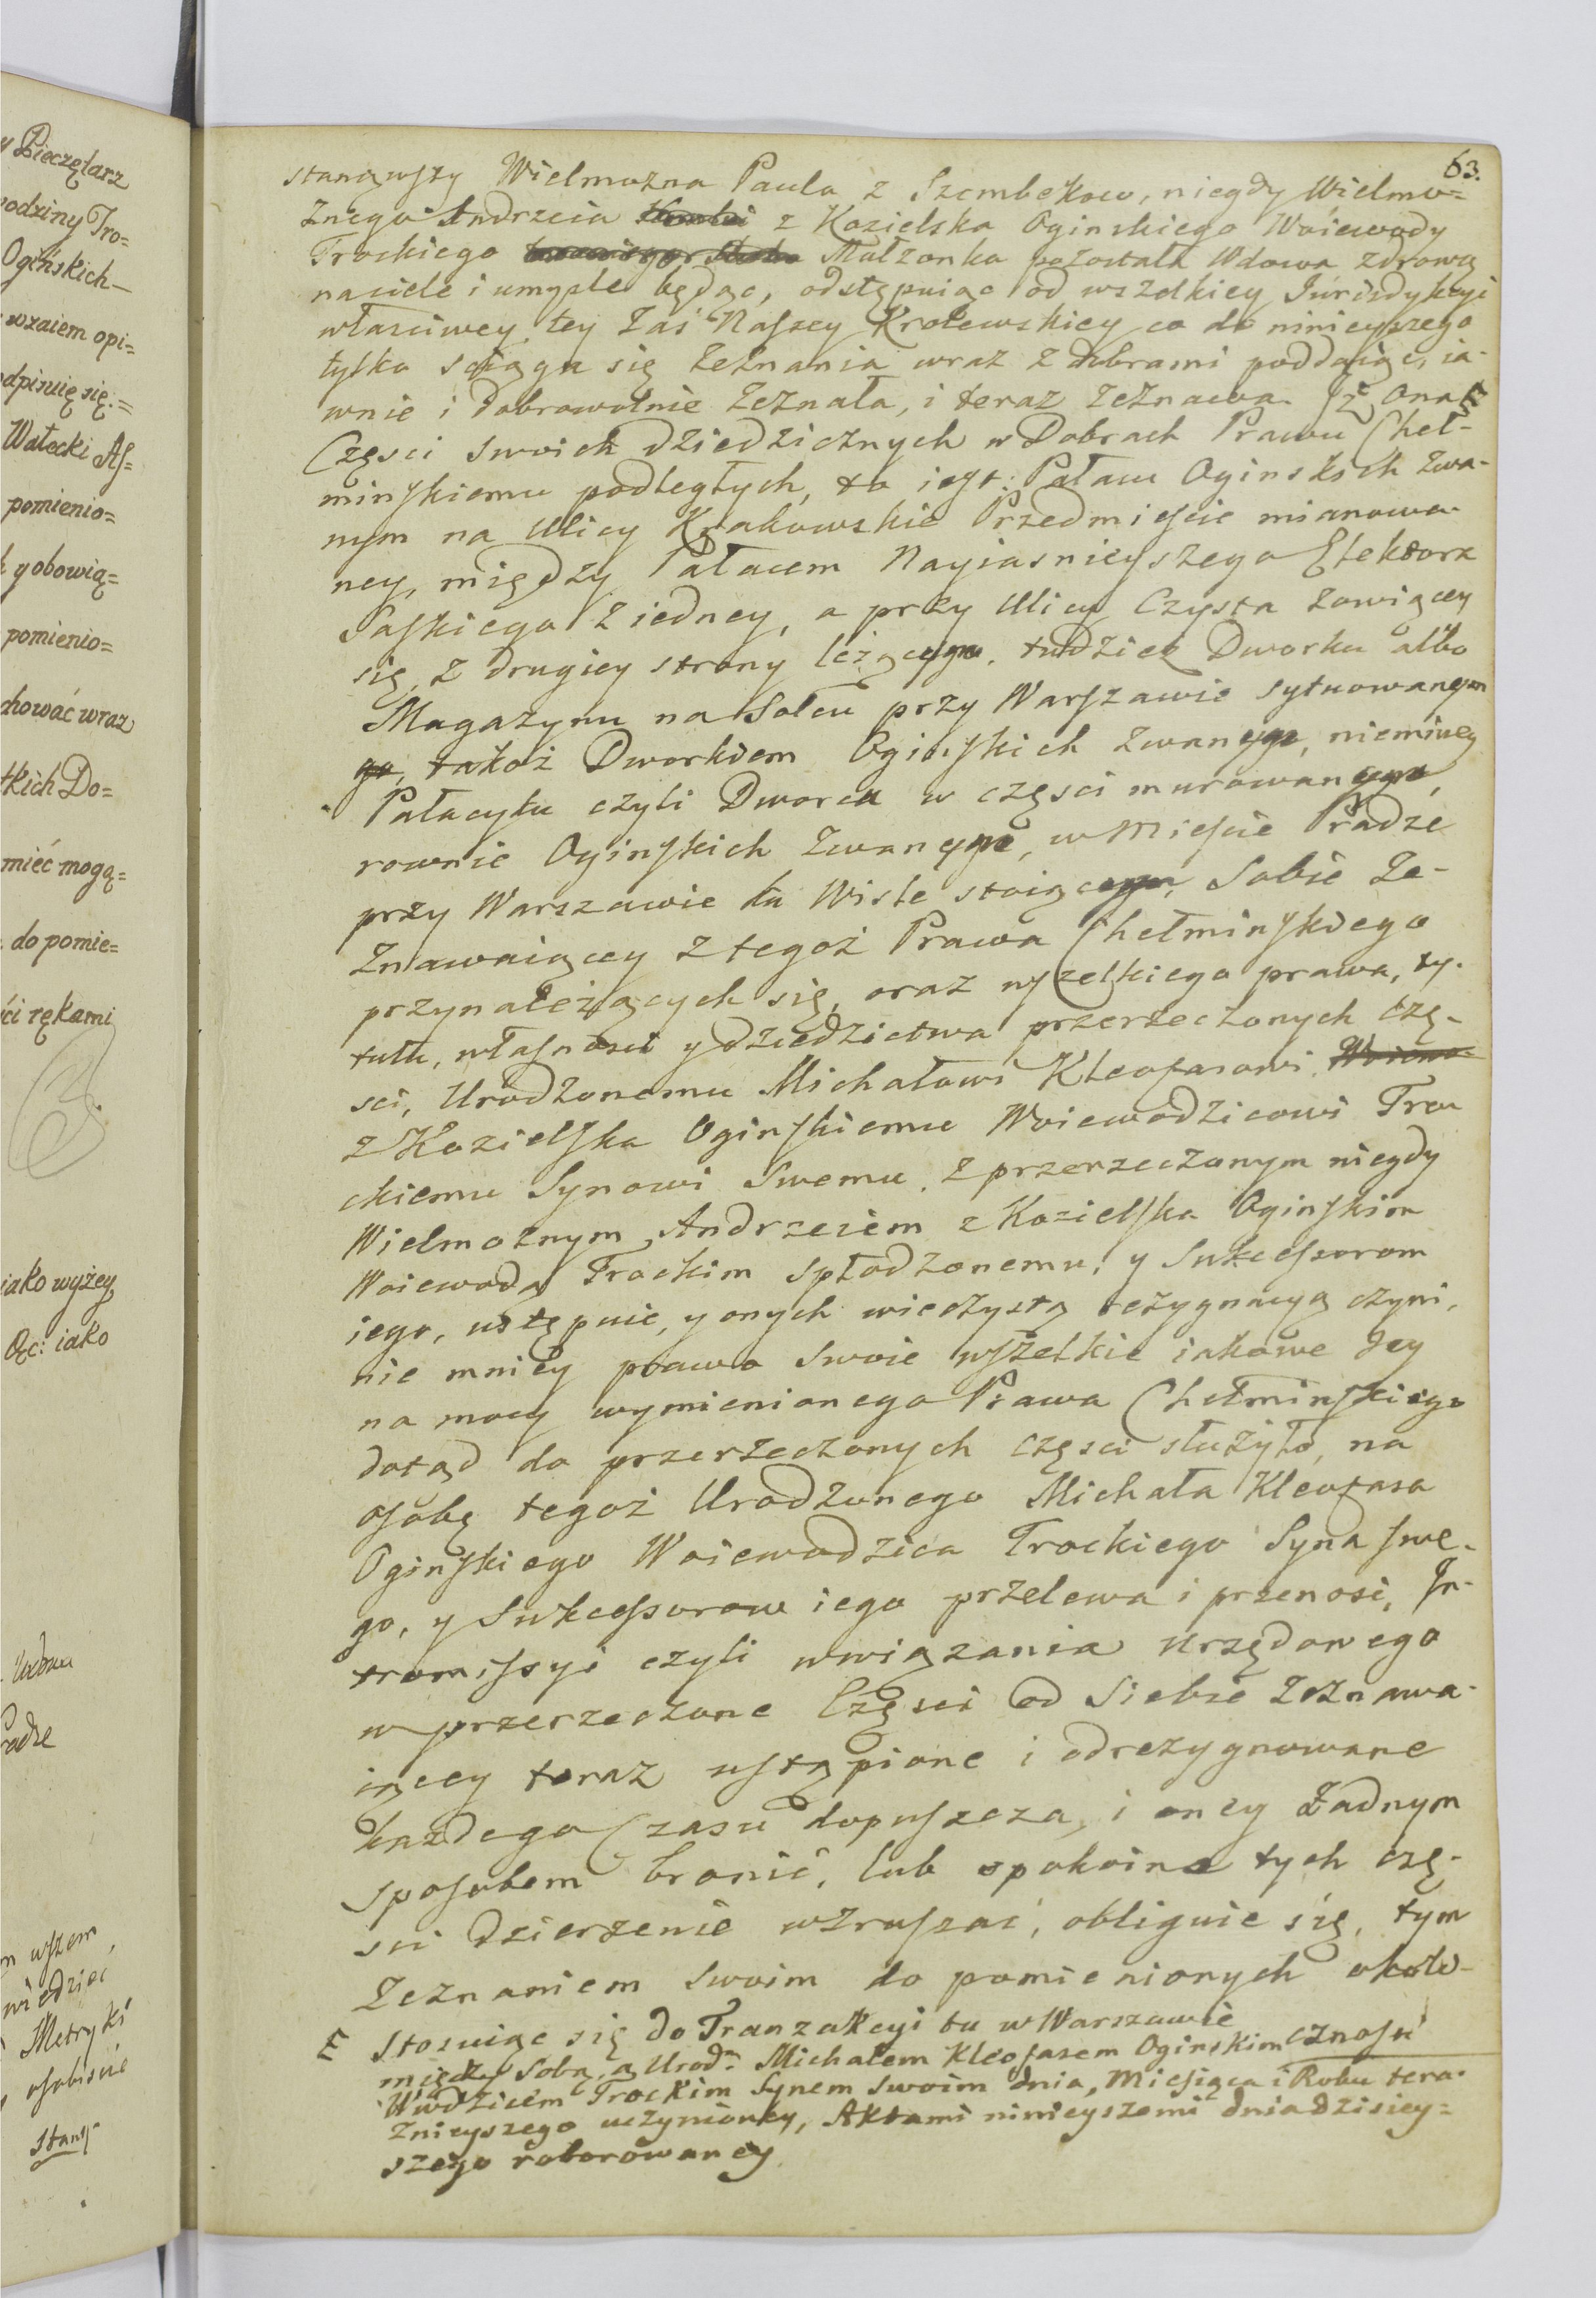 y Pieczętarz
rodziny Tro=
Ogińskich—
wzaiem opi=
odpisuię się.=
Wałecki Aſ=
pomienio=
y obowią=
pomienio=
chować wraz
tkich Do=
mieć mogą=
do pomie=
ści rękami
iako wyżey,
Oęc: iako
radze
m wſzem,
wiedzieć
Metryki
oſobiście
stanę-
63.
stanąwſzy Wielmożna Paula z Szembekow, niegdy Wielmo=
żnego Andrzeia z Kozielska Oginskiego Woiewody
Trockiego Małżonka pozostała Wdowa zdrową
na ciele i umyśle będąc, odstępuiąc od wszelkiey Jurisdykcyi
własciwey, tey zaś Naſzey Krolewskiey co do ninieyszego
tylko sciąga się zeznania wraz z dobrami poddaiąc, ia-
wnie i dobrowolnie zeznała, i teraz zeznawa. Jż Ona E
Częsci swoich dziedzicznych w Dobrach Prawu Cheł-
minſkiemu podległych, to ieſt: Pałacu Oginskich zwa-
nym na Ulicy Krakowskie Przedmieſcie mianowa-
ney, między Pałacem Nayiasnieyszego Elektora
Saſkiego z iedney, a przy Ulicy Czysta zowiącey
się z drugiey strony leżącym, tudziez Dworku albo
Magazynu na Solcu przy Warſzawie sytuowanym
go, takoż Dworkiem Oginſkich zwanym, niemniey
Pałacyku czyli Dworca w częsci murowanym,
rownie Oginſkich zwanym, w Mieſcie Pradze
przy Warszawie ku Wisle stoiącym, Sobie Ze-
znawaiącey z tegoż Prawa Chełminſkiego
przynależących się, oraz wſzelkiego prawa, ty-
tułu, właſnosci y dziedzictwa przerzeczonych czę-
sci, Urodzonemu Michałowi Kleofasowi Woiewo-
z Kozielſka Oginſkiemu Woiewodzicowi Tro-
ckiemu Synowi Swemu, z przerzeczonym niegdy
Wielmożnym Andrzeiem z Kozielſka Oginſkim
Woiewodą Trockim spłodzonemu, y Sukceſsorom
iego, ustępuie, y onych wieczystą rezygnacyą czyni,
nie mniey prawo swoie wſzelkie iakowe Jey
na mocy wymienionego Prawa Chełminſkiego
dotąd do przerzeczonych częsci służyło, na
oſobę tegoż Urodzonego Michała Kleofasa
Oginſkiego Woiewodzica Trockiego Syna ſwe-
go, y Sukceſsorow iego przelewa i przenosi, Jn-
tromiſsyi czyli wwiązania urzędowego
w przerzeczone Częsci od Siebie Zeznawa-
iącey teraz uſtąpione i odrezygnowane
każdego Czasu dopuſzcza, i oney żadnym
spoſobem bronić, lub spokoine tych czę-
sci dzierżenie wzruſzać, obliguie się, tym
Zeznaniem swoim do pomienionych okoli-
cznoſci
E Stosuiąc się do Tranzakcyi tu w Warszawie
między Sobą, a Urod: Michałem Kleofasem Oginskim
Wwdzicem Trockim Synem Swoim dnia, Mieſiąca i Roku tera-
znieyszego uczynioney, Aktami ninieyszemi dnia dzisiey=
szego roborowaney